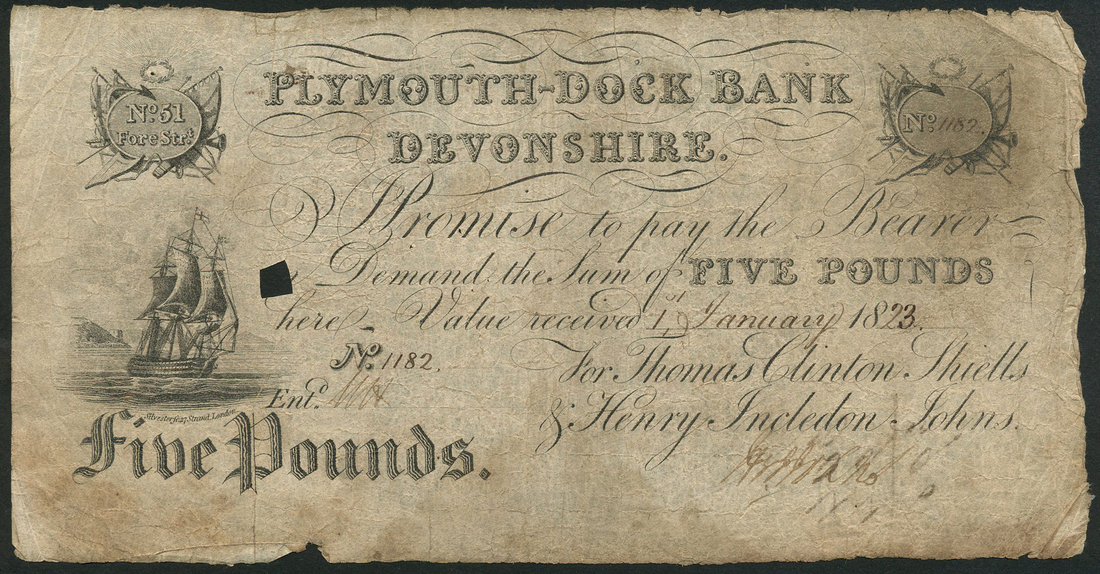 PLYMOUTH-DOCK BANK
DEVONSHIRE.
No. 51
Fore Strt.
No. 1182.
I Promise to pay the Bearer
Demand the Sum of FIVE POUNDS
here Value received 1st January 1823.
No. 1182.
For Thomas Clinton Shiells
Entd.
& Henry Incledon Johns.
Silvester sc. 27, Strand, London.
Five Pounds.